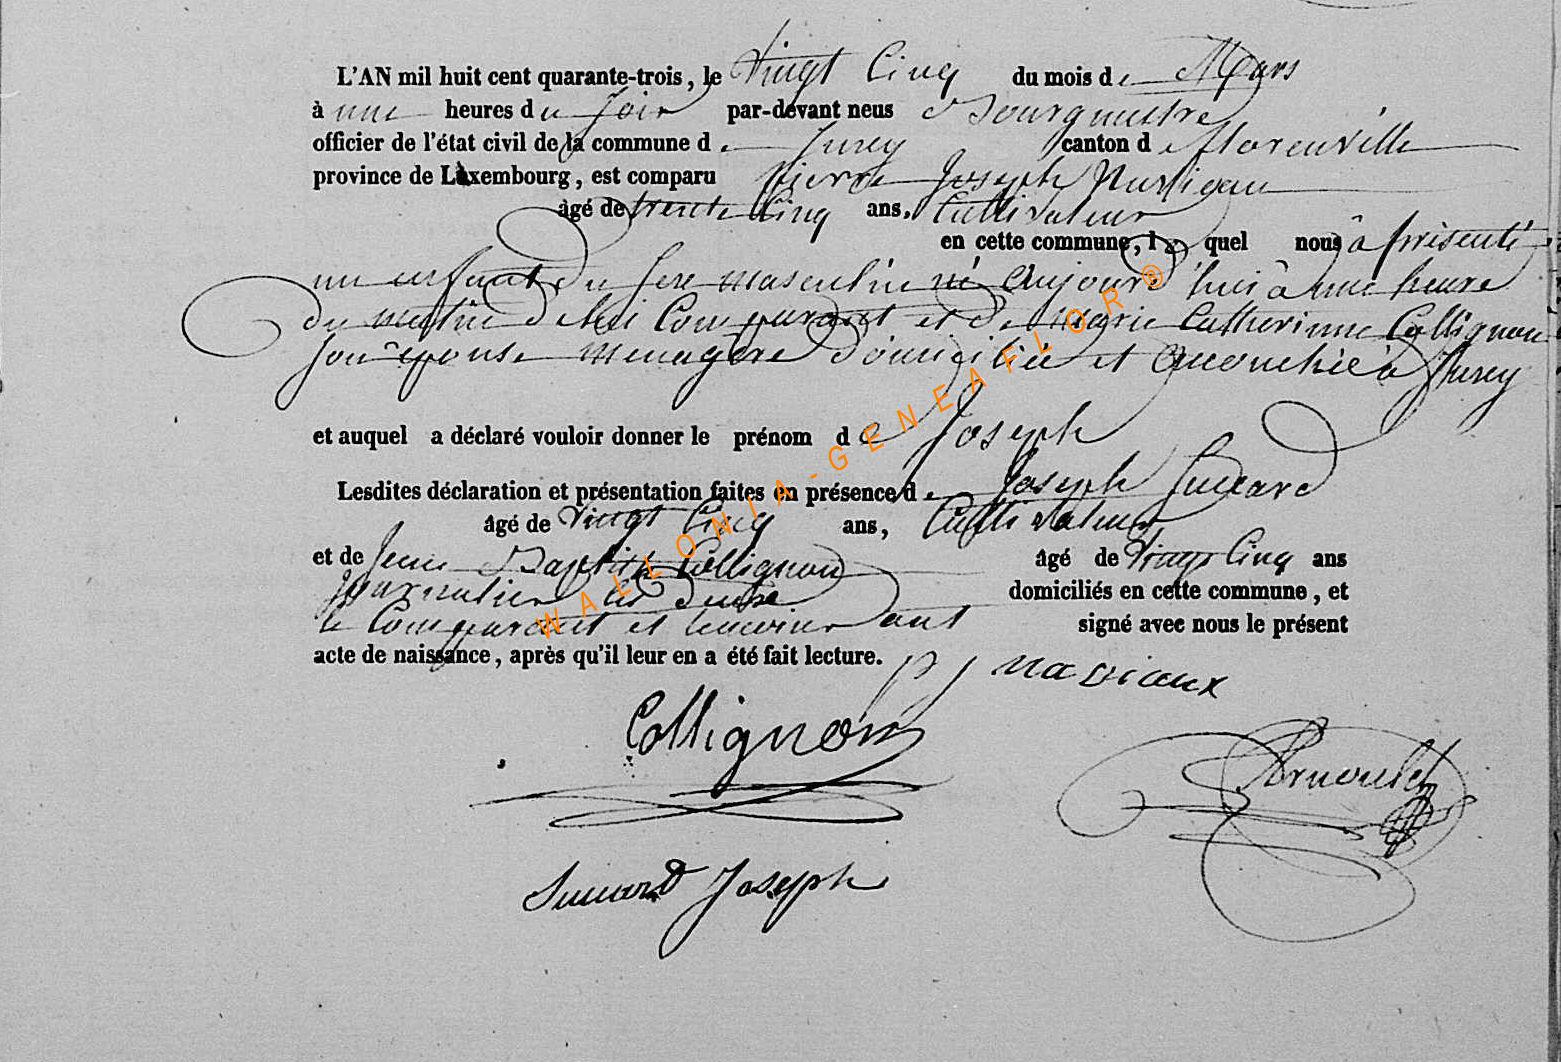 L'AN mil huit cent quarante-trois, le Vingt Cinq du mois de Mars
à une heures du Soir par-devant nous Bourgmestre
officier de l'état civil de la commune de Jusey canton de Florenville
province de Luxembourg, est comparu Pierre Joseph
âgé de trente Cinq ans, Cultivateur
en cette commune, lequel nous à présenté
un enfant du sexe masculin né Aujourd'hui à une heure
du matin de lui Comparant et de Marie Catherinne Collignon
son épouse menagère domiciliée et accouchée à Jusey
et auquel a déclaré vouloir donner le prénom de Joseph
Lesdites déclaration et présentation faites en présence de Joseph
âgé de Vingt Cinq ans, Cultivateur
et de Jean Baptiste Collignon âgé de Vingt Cinq ans
journalier les deux domiciliés en cette commune, et
le Comparant et temoins ont signé avec nous le présent
acte de naissance, après qu'il leur en a été fait lecture.
P J
Collignon
Arnould
Joseph
WALLONIA-GENEAFLOR®